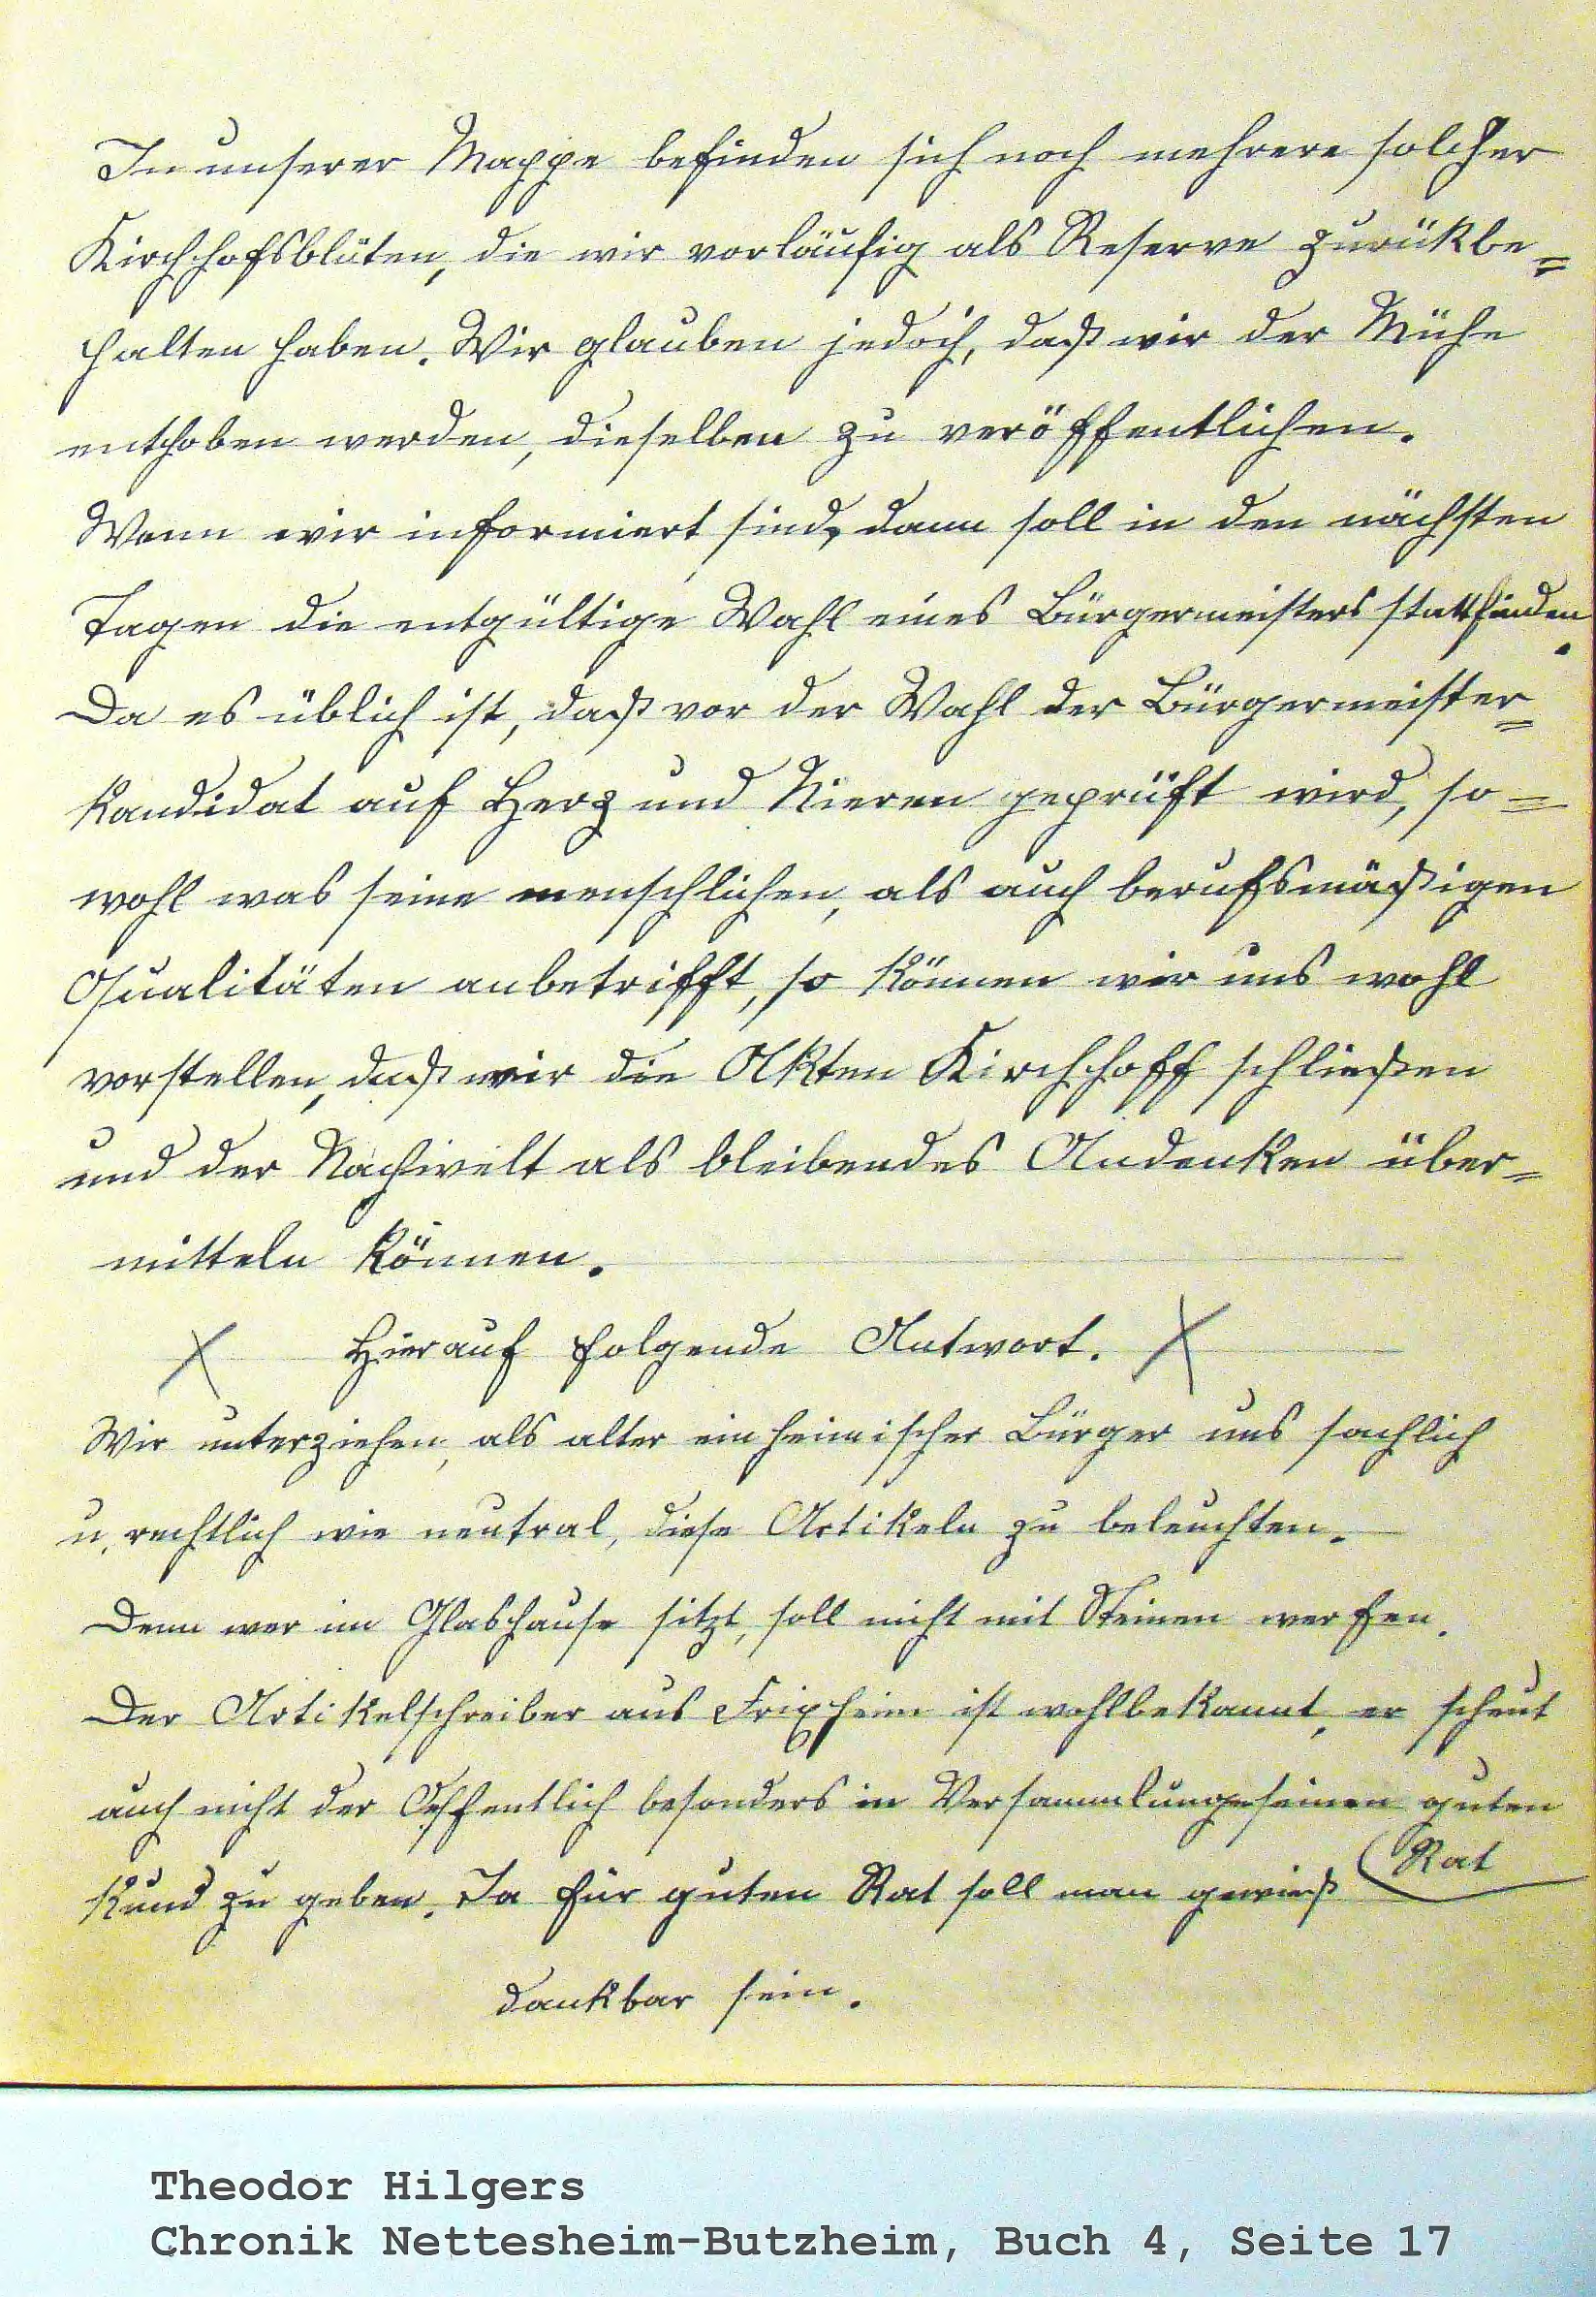 In unserer Mappe befinden sich noch mehrere solcher
Kirchhofsblüten, die wir vorläufig als Reserve zurükbe=
halten haben. Wir glauben jedoch, daß wir der Mühe
enthoben werden, dieselben zu veröffentlichen.
Wenn wir informiert sind, dann soll in den nächsten
Tagen die entgültige Wahl eines Bürgermeisters stattfinden.
Da es üblich ist, daß vor der Wahl der Bürgermeister=
kandidat auf Herz und Nieren geprüft wird, so=
wohl was seine menschlichen, als auch berufsmäßigen
Qualitäten anbetrifft, so können wir uns wohl
vorstellen, daß wir die Akten Kirchhoff schließen
und der Nachwelt als bleibendes Andenken über=
mitteln können.
X Hierauf folgende Antwort. X
Wir unterziehen, als alter einheimischer Bürger uns sachlich
u. rechtlich wie neutral, diese Artikeln zu beleuchten.
Denn wer im Glashause sitzt, soll nicht mit Steinen werfen.
Der Artikelschreiber aus Frixheim ist wohlbekannt, er scheut
auch nicht der Oeffentlich besonders in Versammlunge seinen guten
Rat
kund zu geben. Ja für guten Rat soll man gewieß
dankbar sein.
Theodor Hilgers
Chronik Nettesheim-Butzheim, Buch 4, Seite 17